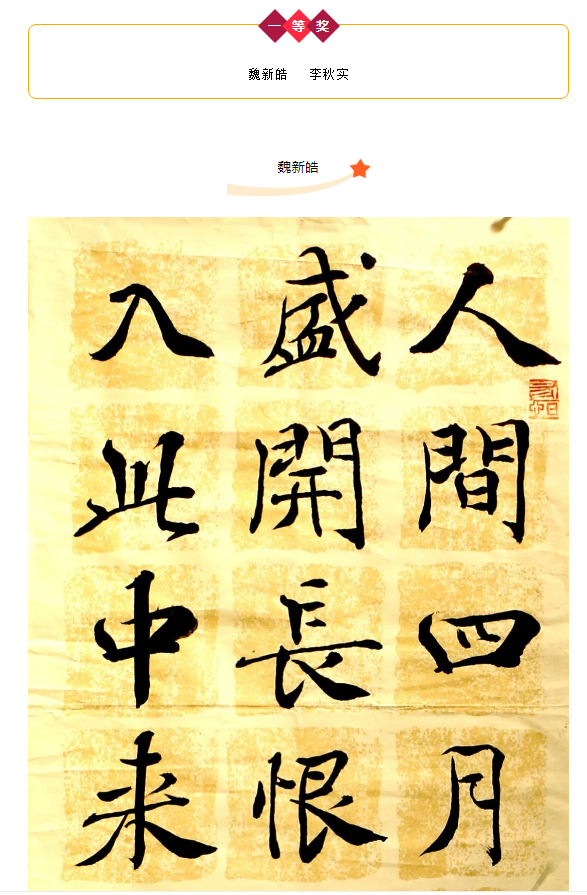 一等奖
魏新皓 李秋实
魏新皓
人間四月
盛開長恨
入此中来